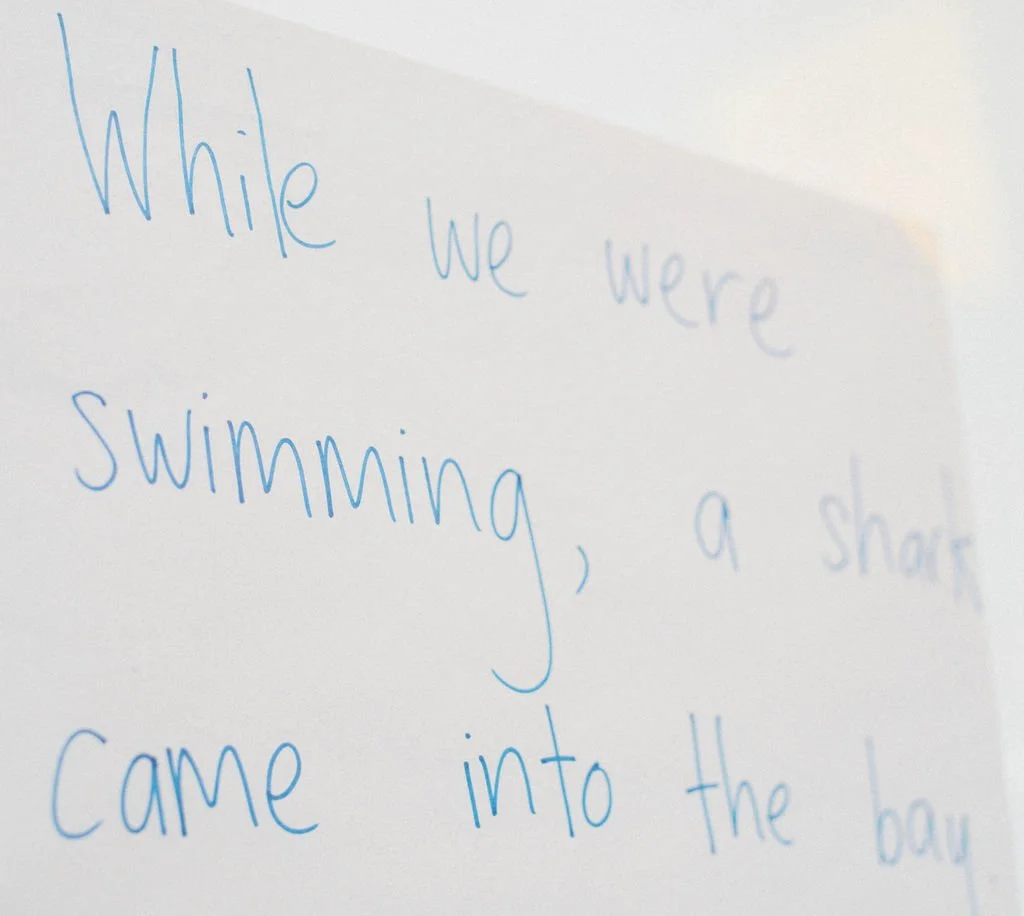 While we were
swimming, a shark
came into the bay.